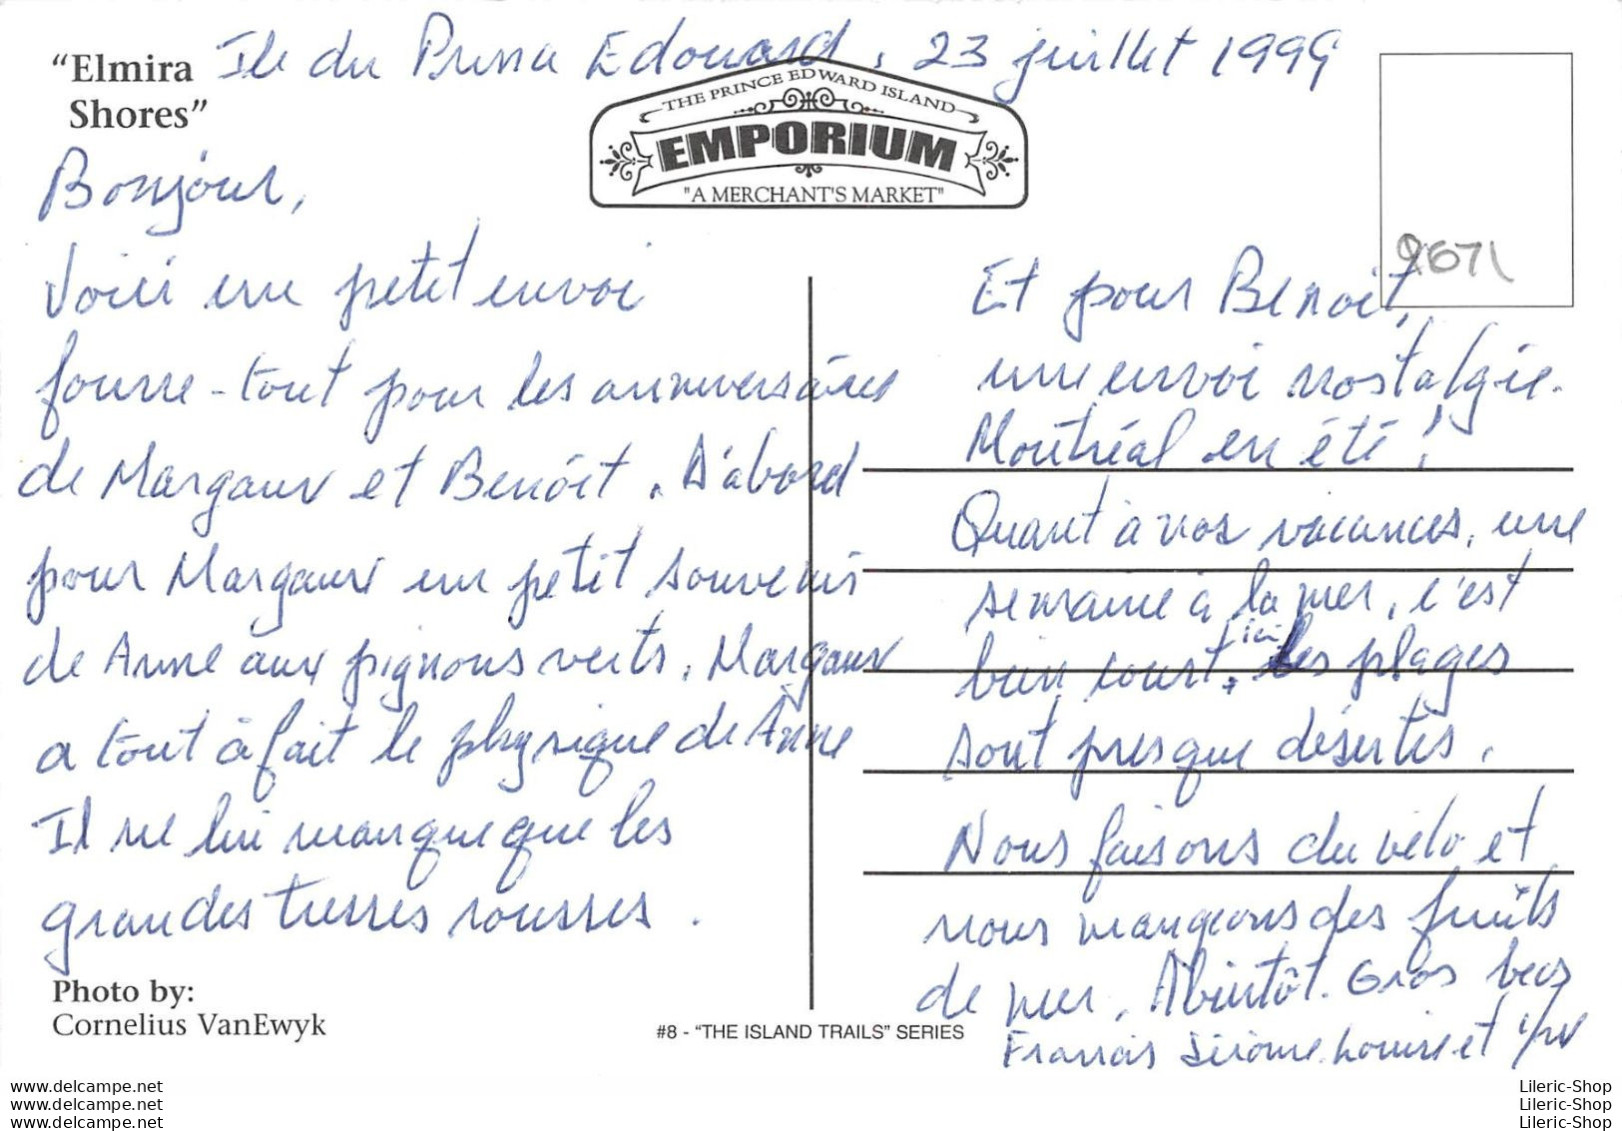 "Elmira
Shores"
Ile du Prince Edouard, 23 juillet 1999
THE PRINCE EDWARD ISLAND
EMPORIUM
"A MERCHANT'S MARKET"
2671
Bonjour,
Voici un petit envoi
fourre-tout pour les anniversaires
de Margaux et Benoît. D'abord
pour Margaux un petit souvenir
de Anne aux pignons verts. Margaux
a tout à fait le physique de Anne
Il ne lui manque que les
grandes tresses rousses.
Et pour Benoit,
un envoi nostalgie.
Montréal en été!
Quant à vos vacances, une
semaine à la mer, c'est
bien court. ici les plages
sont presque désertes.
Nous faisons du vélo et
nous mangeons des fruits
de mer. A bientôt. Gros becs
Francis Jérôme Louise et
Photo by:
Cornelius VanEwyk
#8 - "THE ISLAND TRAILS" SERIES
www.delcampe.net
www.delcampe.net
www.delcampe.net
Lileric-Shop
Lileric-Shop
Lileric-Shop